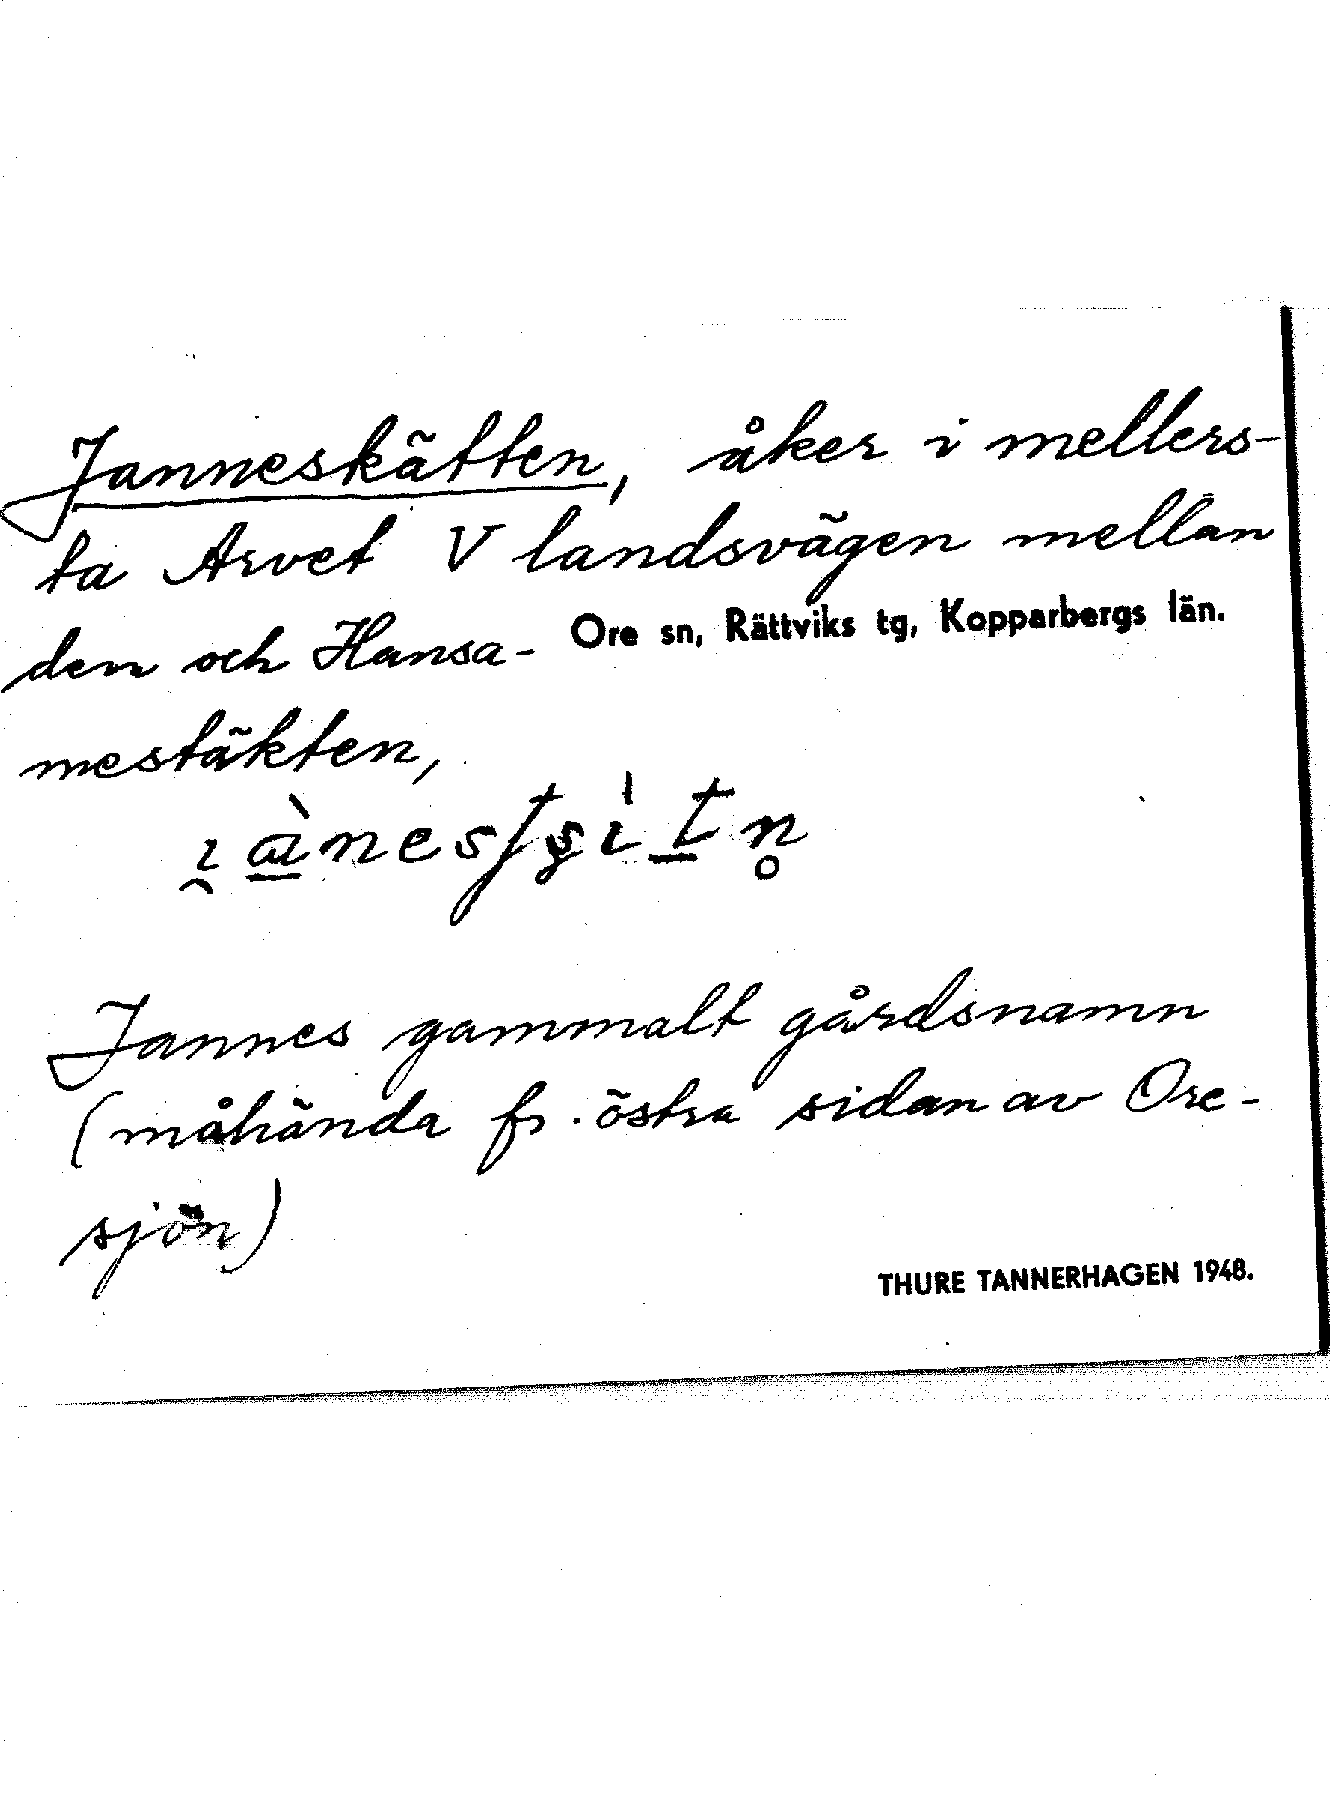 Janneskätten, åker i mellers-
ta Arvet V landsvägen mellan
den och Hansa-
Ore sn, Rättviks tg, Kopparbergs län.
mestäkten,
Jannes gammalt gårdsnamn
(måhända fr. östra sidan av Ore-
sjön)
THURE TANNERHAGEN 1948.